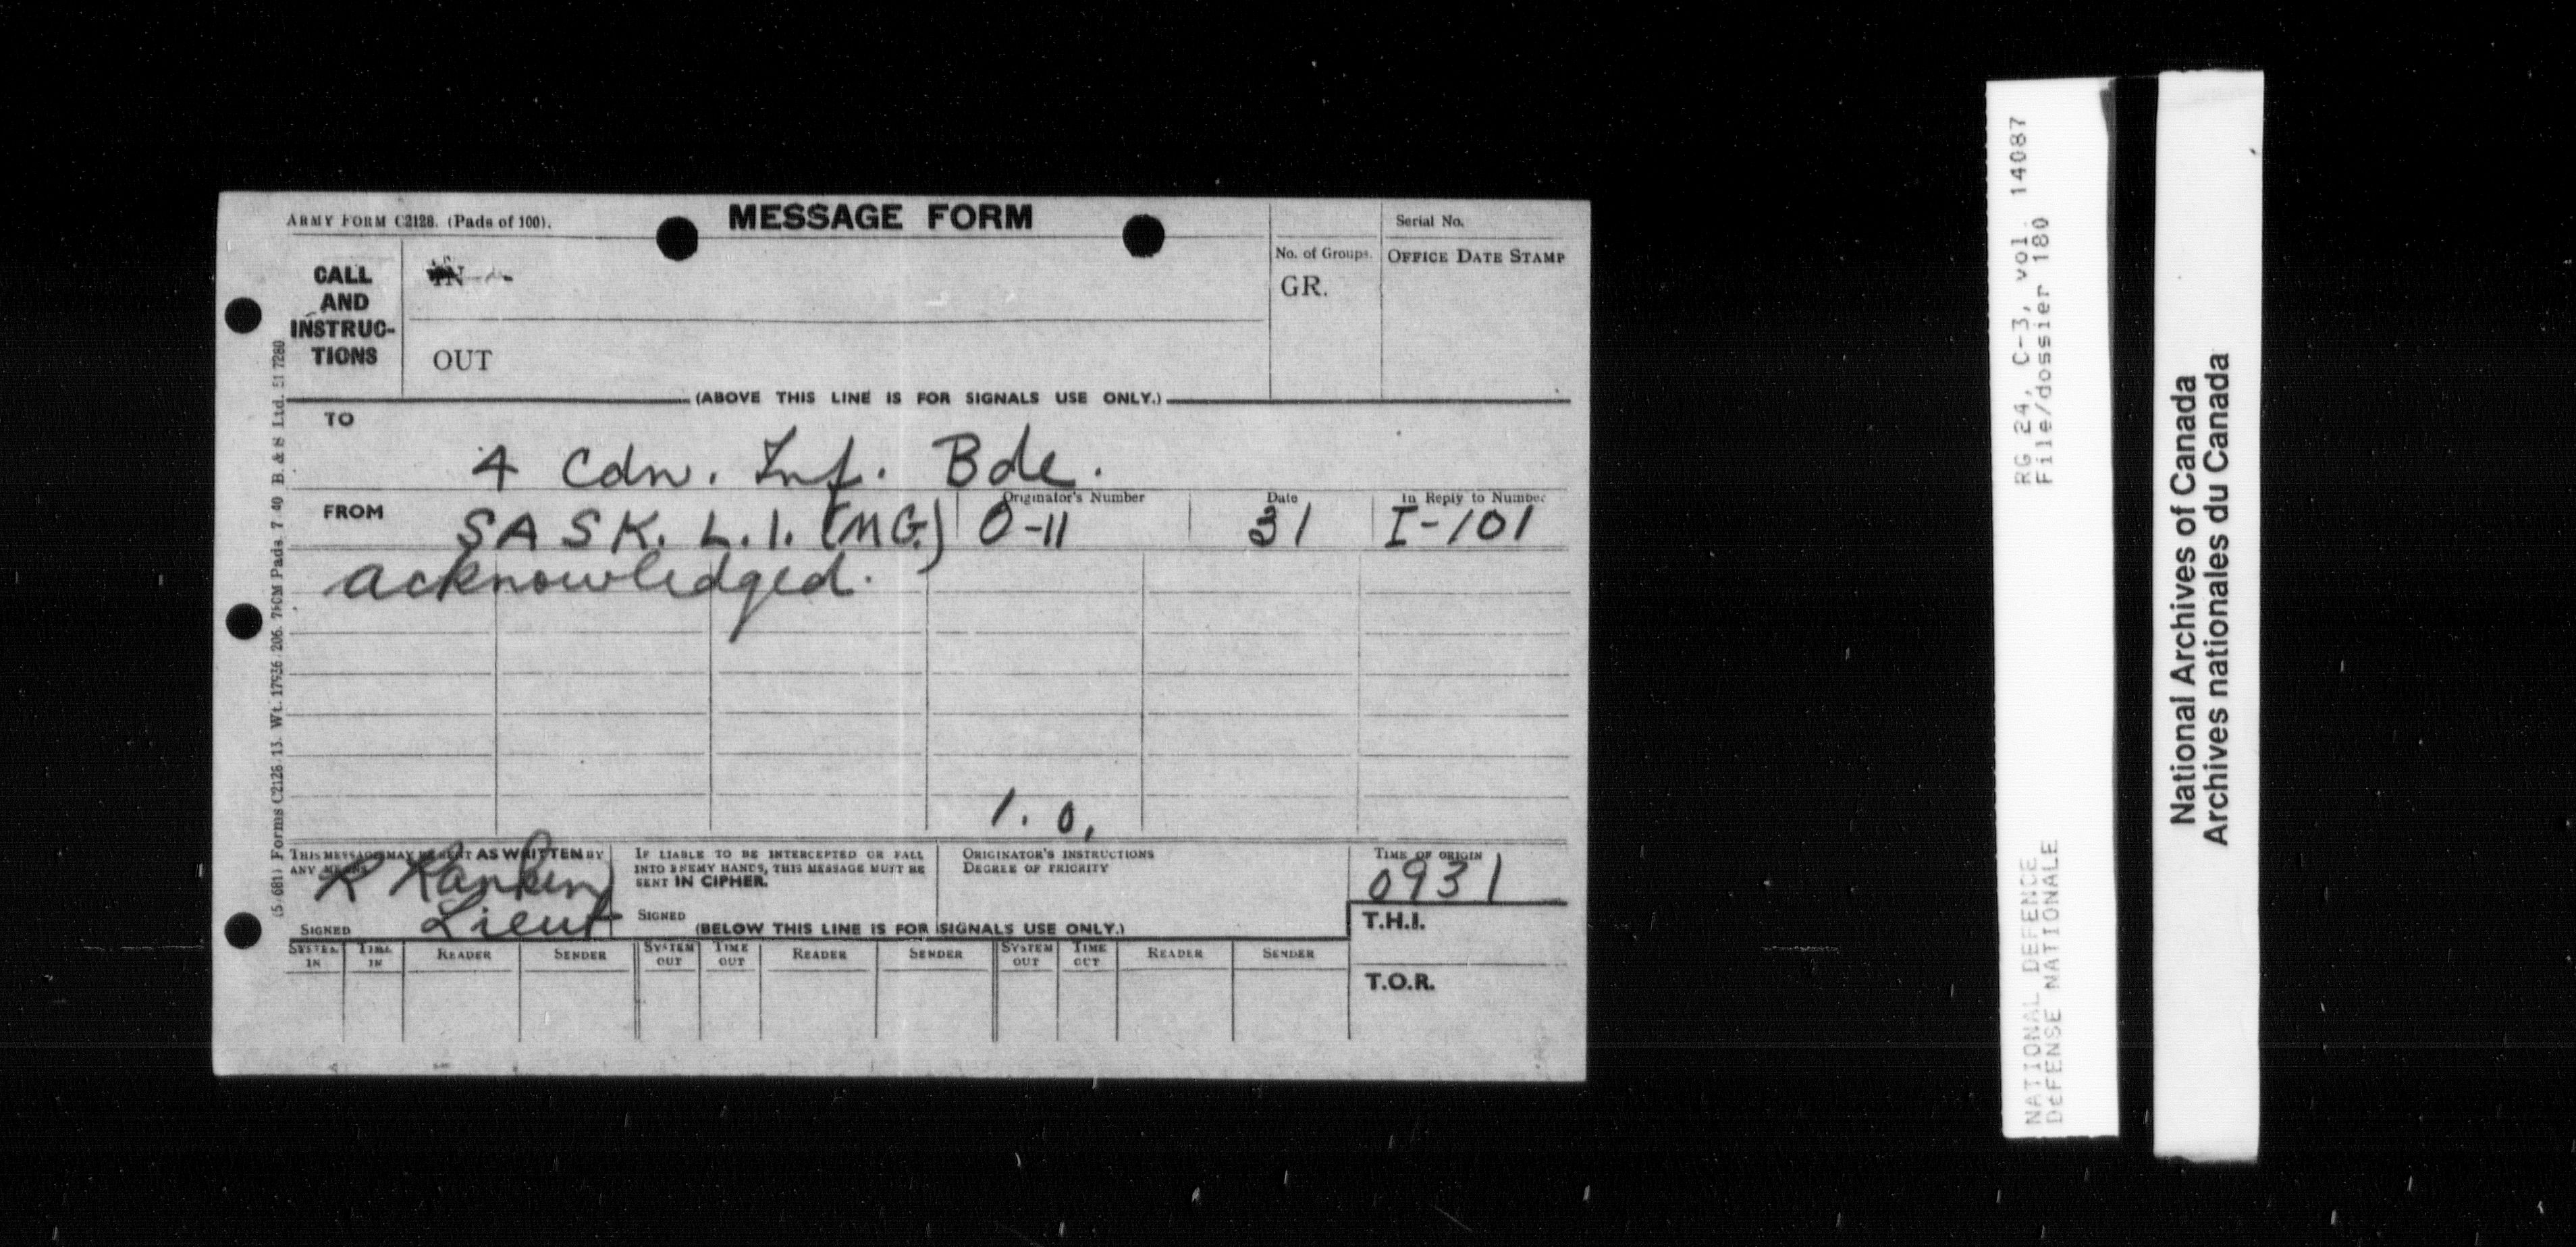 ARMY FORM C2128. (Pads of 100).
MESSAGE FORM
Serial No.
CALL AND INSTRUC- TIONS
IN
No. of Groups.
GR.
OFFICE DATE STAMP
OUT
(ABOVE THIS LINE IS FOR SIGNALS USE ONLY.)
TO
4 Cdn. Inf. Bde.
FROM
SASK. L.I. (M.G.)
Originator's Number
O-11
Date
31
In Reply to Number
I-101
acknowledged.
1.0.
THIS MESSAGE MAY BE SENT AS WRITTEN BY
ANY MEANS
R Rankin
Lieut
SIGNED
IF LIABLE TO BE INTERCEPTED OR FALL
INTO ENEMY HANDS, THIS MESSAGE MUST BE
SENT IN CIPHER.
SIGNED
ORIGINATOR'S INSTRUCTIONS
DEGREE OF PRIORITY
TIME OF ORIGIN
0931
(BELOW THIS LINE IS FOR SIGNALS USE ONLY.)
T.H.I.
SYSTEM IN
TIME IN
READER
SENDER
SYSTEM OUT
TIME OUT
READER
SENDER
SYSTEM OUT
TIME OUT
READER
SENDER
T.O.R.
Forms C2128/13. Wt. 17936/206. Pads 7 40 B. & S Ltd. 51 7280
RG 24, C-3, vol. 14087
File/dossier 180
NATIONAL DEFENCE
DÉFENSE NATIONALE
National Archives of Canada
Archives nationales du Canada